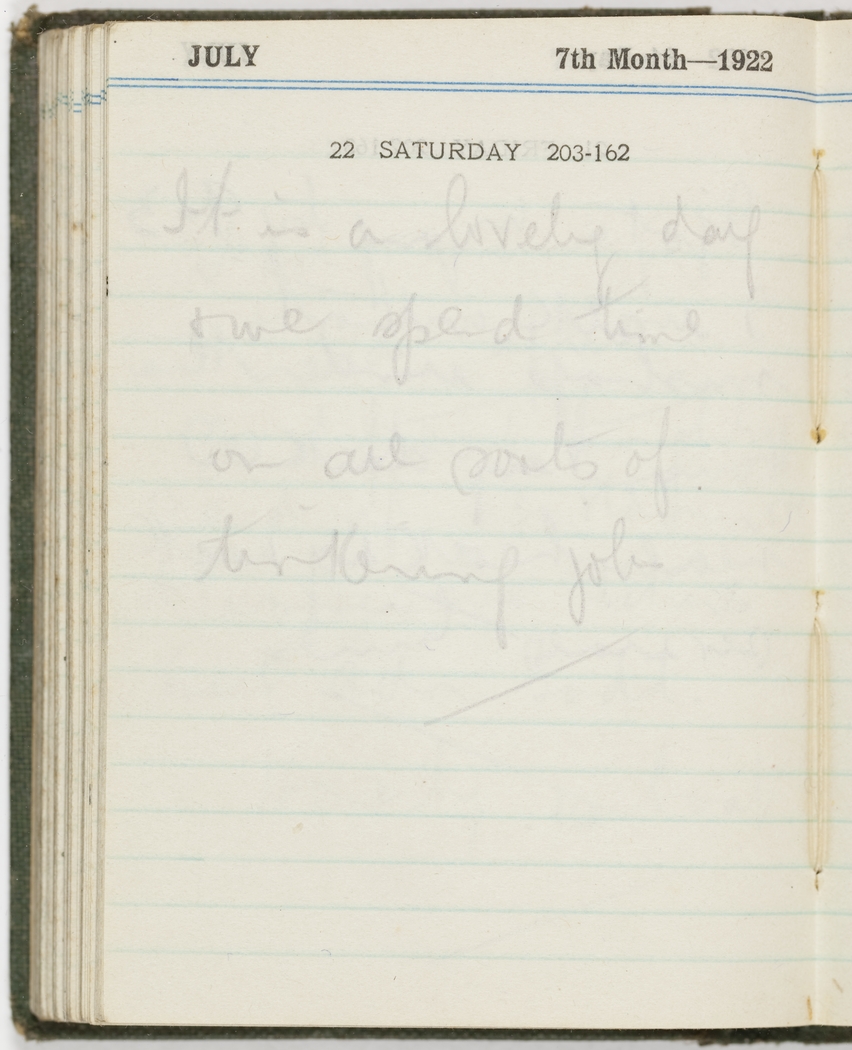 JULY 7th Month—1922
22 SATURDAY 203-162
It is a lovely day
& we spend time
on all sorts of
tinkering jobs